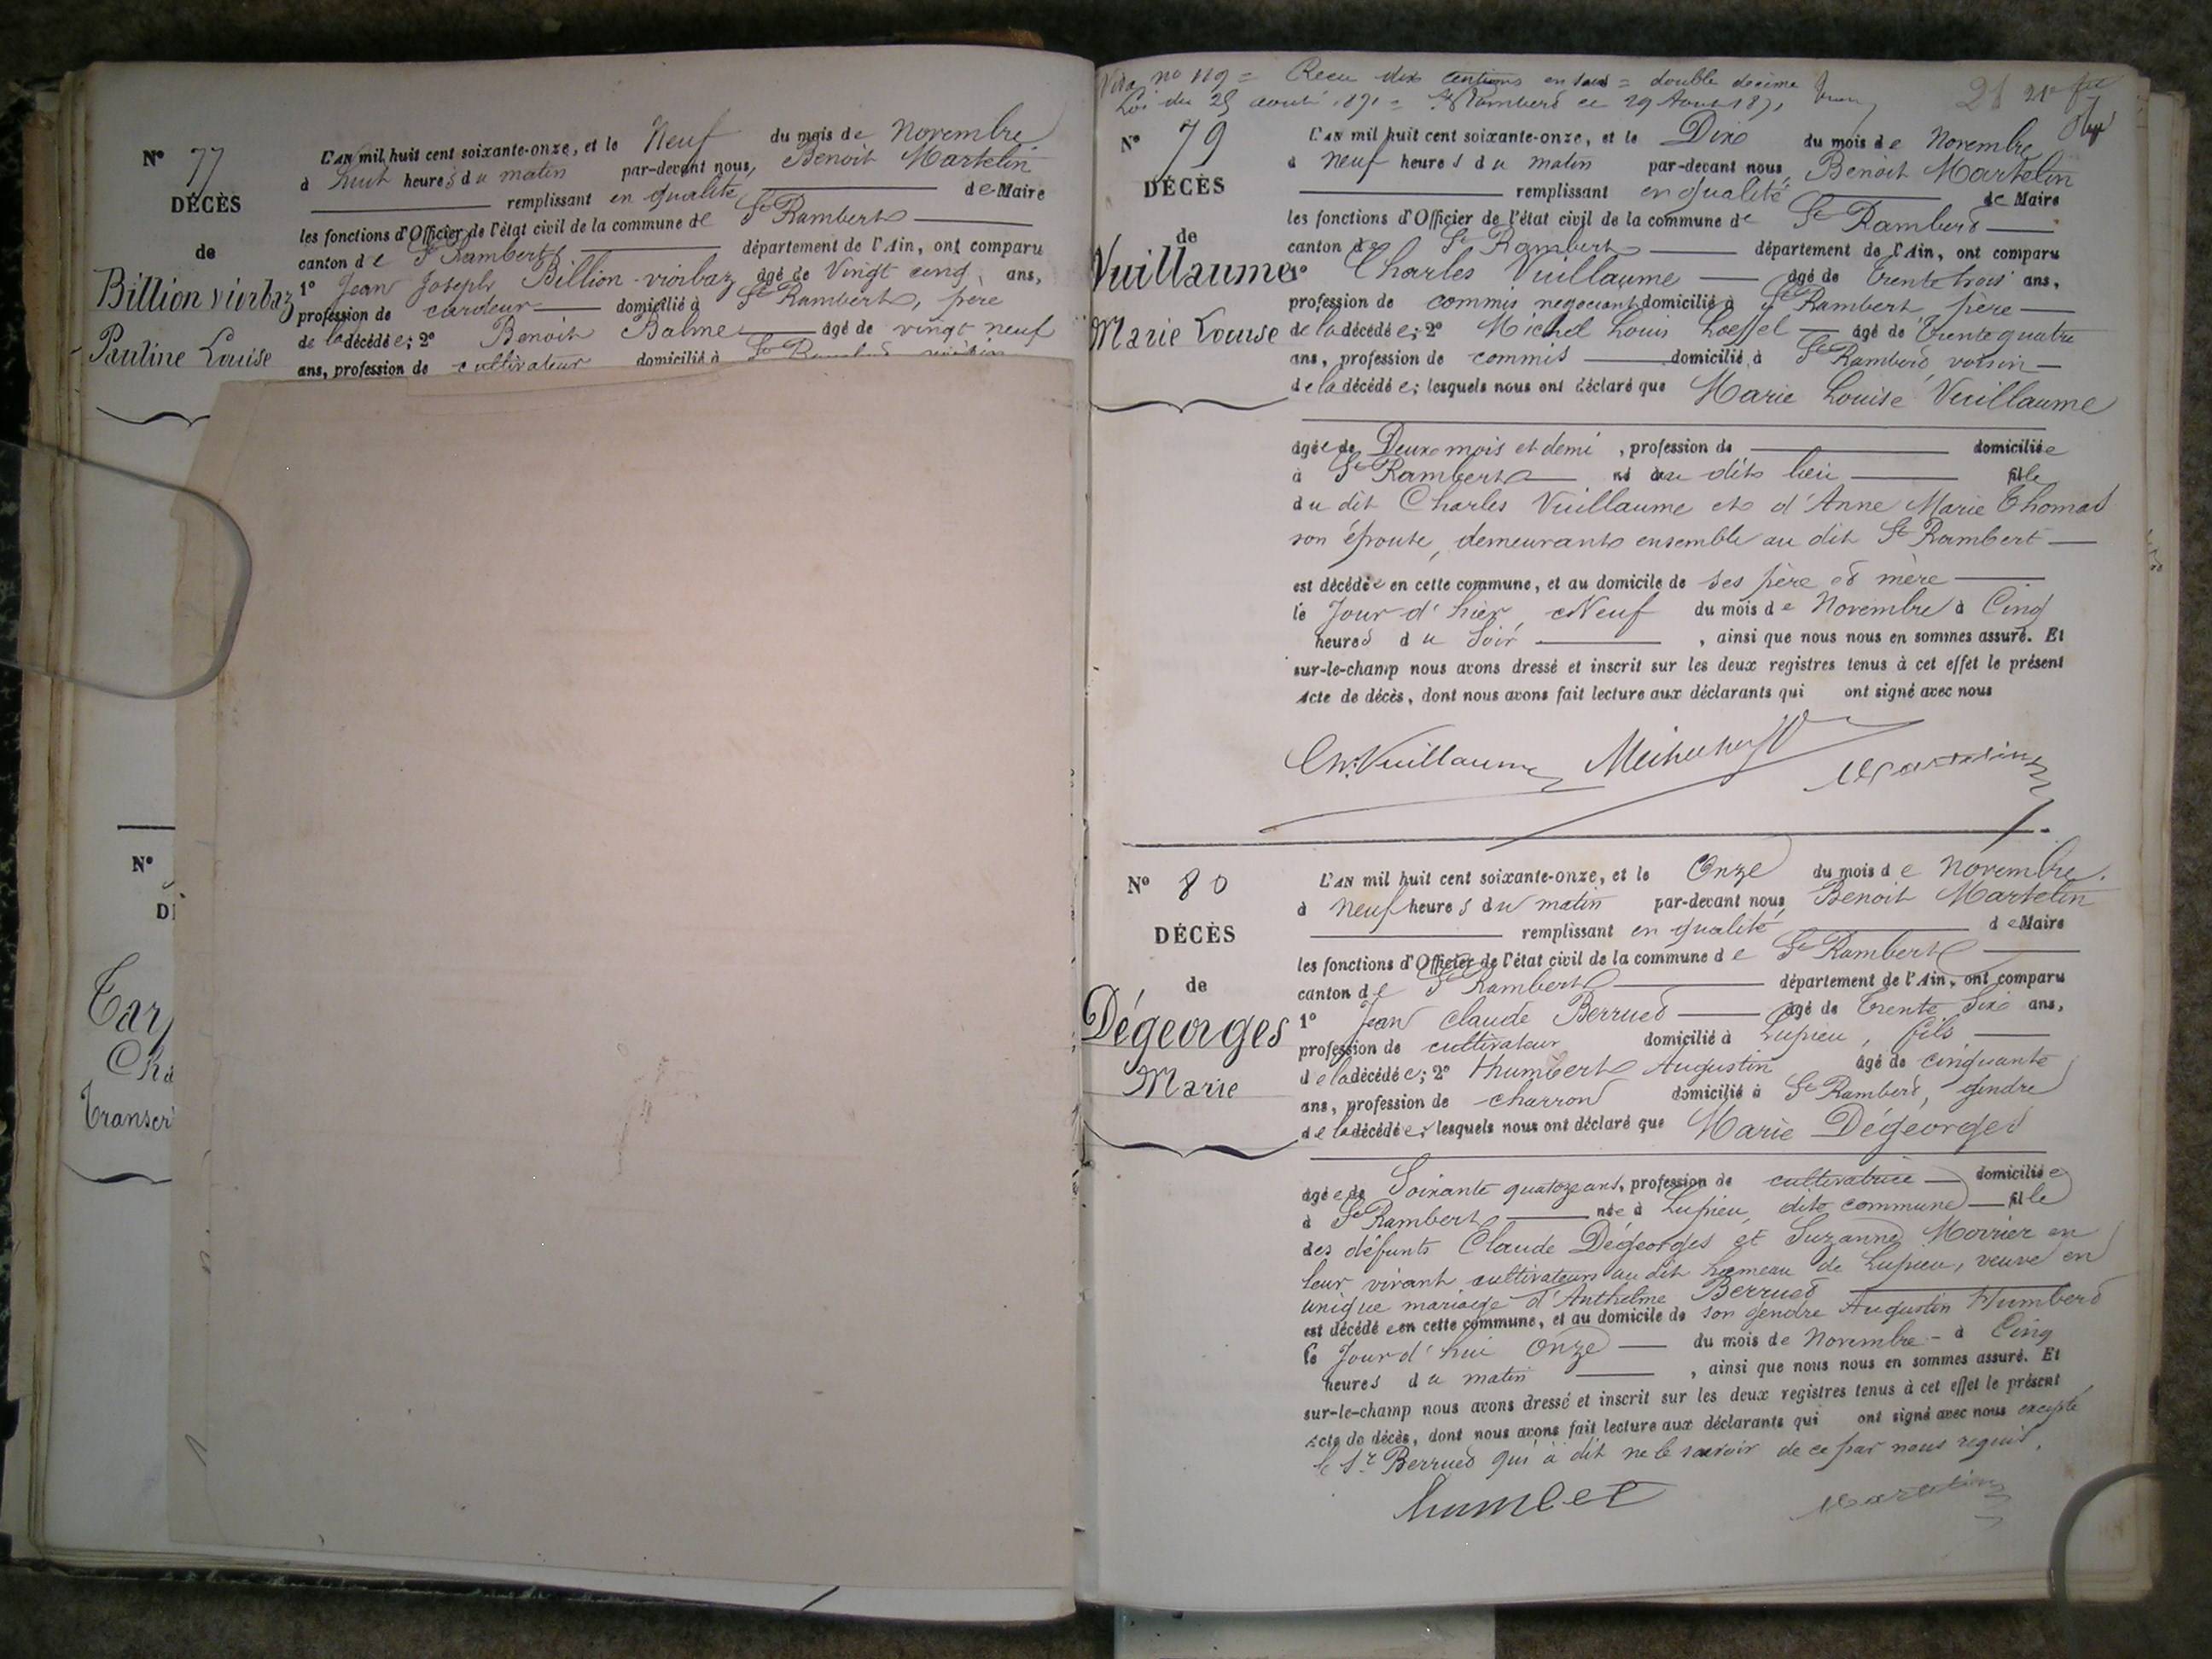 N° 77
DÉCÈS
de
Billion viorbaz
Pauline Louise
L'AN mil huit cent soixante-onze, et le Neuf du mois de Novembre
à huit heures du matin par-devant nous, Benoit Martelin
remplissant en qualité de Maire
les fonctions d'Officier de l'état civil de la commune de St Rambert
canton de St Rambert département de l'Ain, ont comparu
1° Jean Joseph Billion-viorbaz âgé de Vingt cinq ans,
profession de cardeur domicilié à St Rambert, père
de la décédée; 2° Benoit Balme âgé de vingt neuf
ans, profession de cultivateur domicilié à St Rambert voisin
N°
Transcri
no 119 = Recu dix centimes en sus = double decime
Loi du 23 aout 1871 = St Rambert le 29 Aout 1871
21
N° 79
DÉCÈS
de
Vuillaume
Marie Louise
L'AN mil huit cent soixante-onze, et le Dix du mois de Novembre
à Neuf heures du matin par-devant nous, Benoit Martelin
remplissant en qualité de Maire
les fonctions d'Officier de l'état civil de la commune de St Rambert
canton de St Rambert département de l'Ain, ont comparu
1° Charles Vuillaume âgé de trente trois ans,
profession de commis negociant domicilié à St Rambert père
de la décédée; 2° Michel Louis Loeffel âgé de trente quatre
ans, profession de commis domicilié à St Rambert, voisin
de la décédée; lesquels nous ont déclaré que Marie Louise Vuillaume
âgée de Deux mois et demi, profession de domiciliée
à St Rambert né au dit lieu fille
du dit Charles Vuillaume et d'Anne Marie Thomas
son épouse, demeurants ensemble au dit St Rambert
est décédée en cette commune, et au domicile de ses père et mère
le Jour d'hier, Neuf du mois de Novembre à Cinq
heures du Soir, ainsi que nous nous en sommes assuré. Et
sur-le-champ nous avons dressé et inscrit sur les deux registres tenus à cet effet le présent
acte de décès, dont nous avons fait lecture aux déclarants qui ont signé avec nous
Ch. Vuillaume Martelin
N° 80
DÉCÈS
de
Dégeorges
Marie
L'AN mil huit cent soixante-onze, et le Onze du mois de Novembre.
à Neuf heures du matin par-devant nous, Benoit Martelin
remplissant en qualité de Maire
les fonctions d'Officier de l'état civil de la commune de St Rambert
canton de St Rambert département de l'Ain, ont comparu
1° Jean Claude Berrued âgé de trente Six ans,
profession de cultivateur domicilié à Lupieu, fils
de la décédée; 2° Humbert Augustin âgé de cinquante
ans, profession de charron domicilié à St Rambert, gendre
de la décédée; lesquels nous ont déclaré que Marie Dégeorges
âgée de Soixante quatorze ans, profession de cultivatrice domiciliée
à St Rambert née à Lupieu, dite commune fille
des défunts Claude Dégeorges et Suzanne Morrier en
leur vivant cultivateurs au dit hameau de Lupieu, veuve en
unique mariage d'Anthelme Berrued
est décédée en cette commune, et au domicile de son gendre Augustin Humbert
le Jour d'hui Onze du mois de Novembre - à Cinq
heures du matin, ainsi que nous nous en sommes assuré. Et
sur-le-champ nous avons dressé et inscrit sur les deux registres tenus à cet effet le présent
acte de décès, dont nous avons fait lecture aux déclarants qui ont signé avec nous excepté
le Sr Berrued qui a dit ne le savoir de ce par nous requis.
humbet Martelin